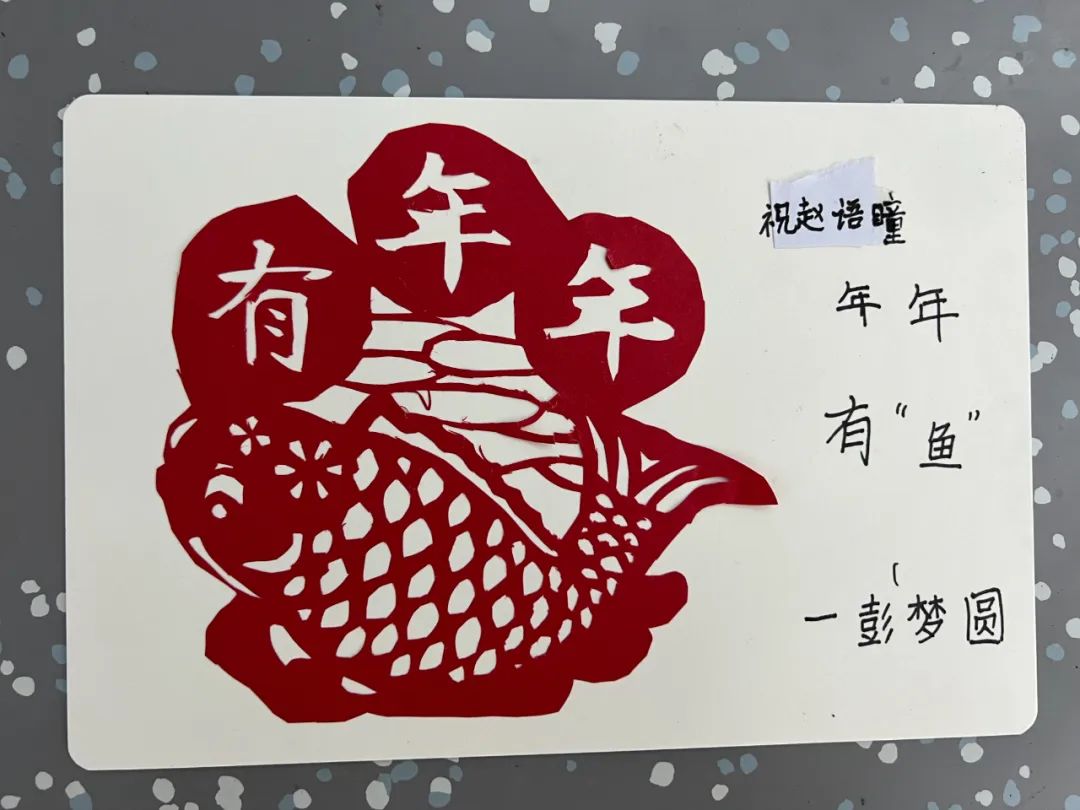 年年有
祝赵语曈
年年
有“鱼”
一彭梦圆